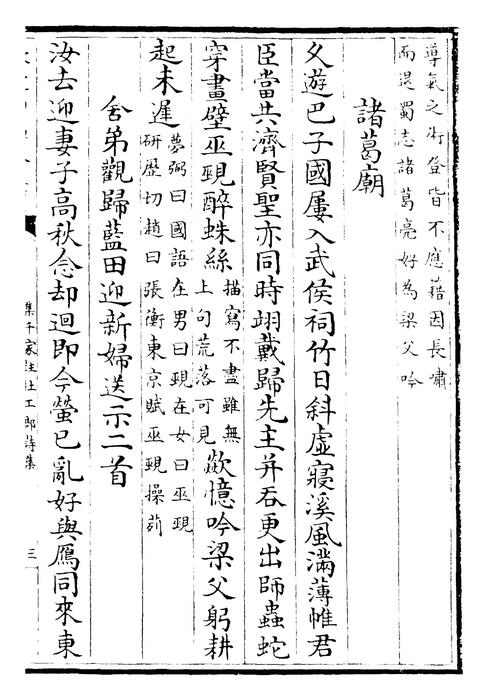 導氣之術登皆不應藉因長嘯
而退蜀志諸葛亮好為梁父吟
諸葛廟
久遊巴子國屢入武侯祠竹日斜虛寢溪風滿薄帷君
臣當共濟賢聖亦同時翊戴歸先主并吞更出師蟲蛇
穿畫壁巫覡醉蛛絲描寫不盡雖無上句荒落可見歘憶吟梁父躬耕
起未遲夢弼曰國語在男曰覡在女曰巫覡研歷切趙曰張衡東京賦巫覡操茢
舍弟觀歸藍田迎新婦送示二首
汝去迎妻子高秋念却迴即今螢已亂好與鴈同來東
集千家註杜工部詩集
三